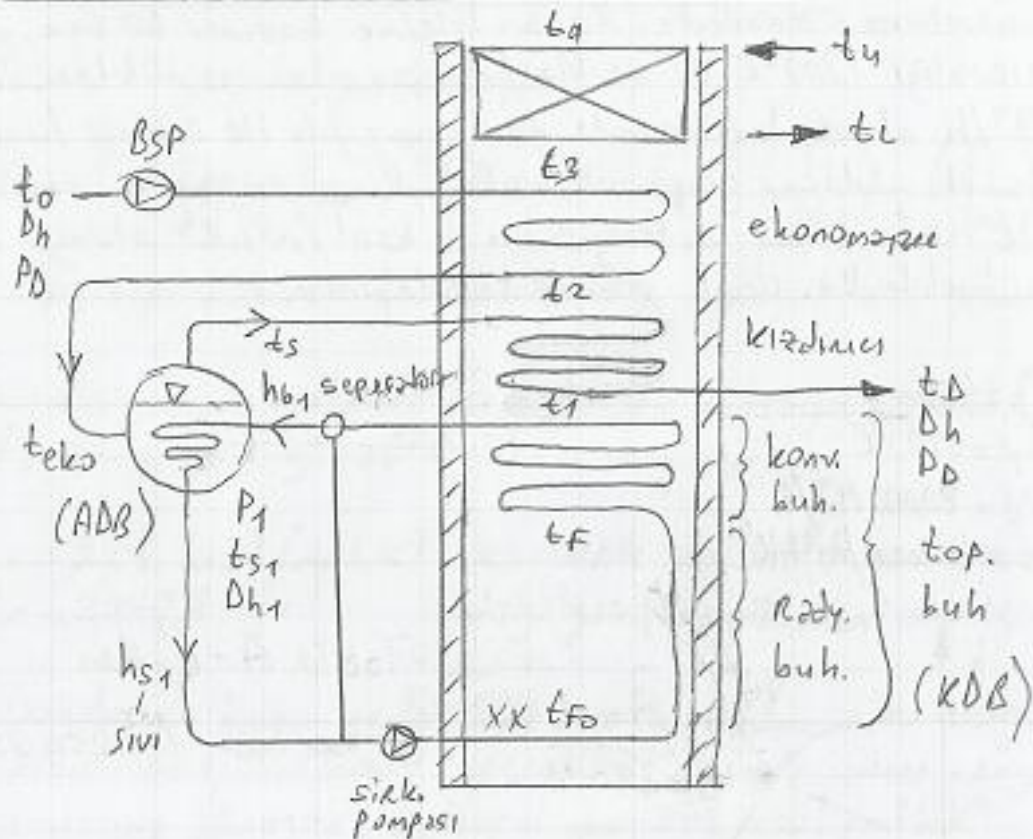 tA
tu
tL
BSP
t0
Dh
PD
t3
ekonomayzer
t2
ts
kızdırıcı
hb1 seperatör
t1
tD
Dh
PD
teko
(ADB)
P1
ts1
Dh1
konv.
buh.
tF
top.
buh
Rady.
buh.
(KDB)
hs1
sıvı
xx tFo
sirk.
pompası